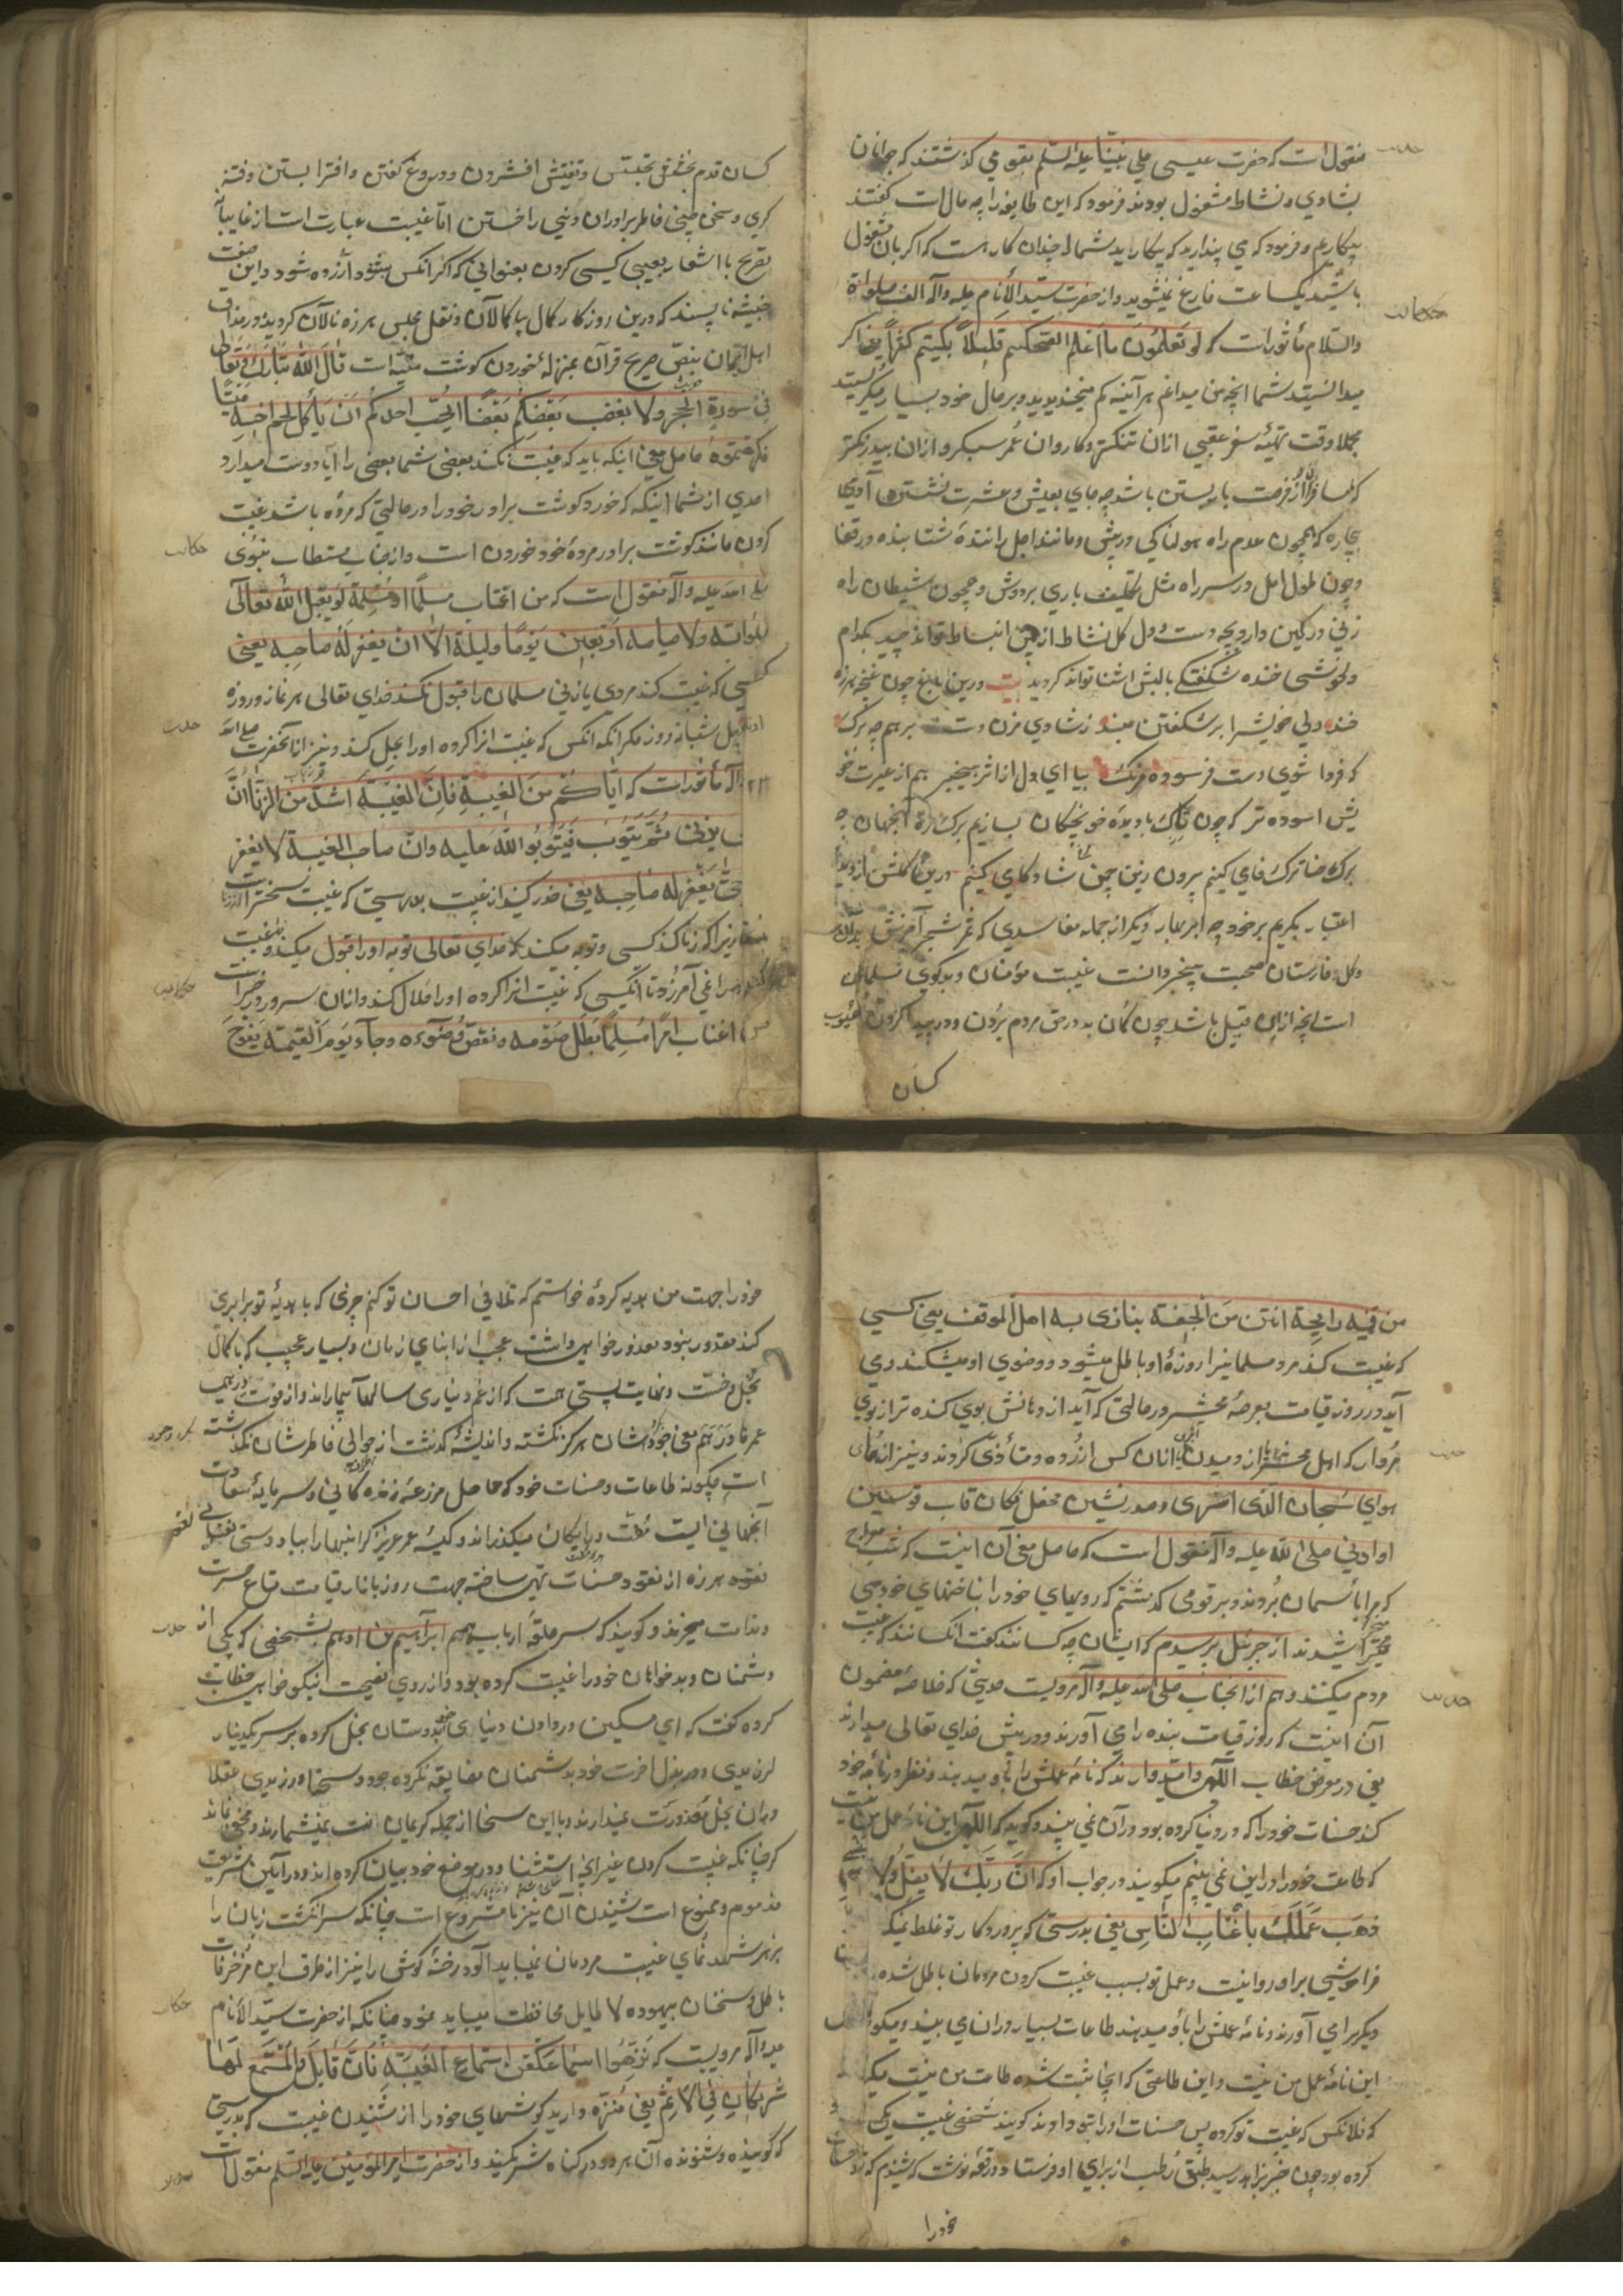 منقول است که حضرت عیسی علی نبینا علیه السلم بقومی گذشتند که جوانان
بشادی و نشاط مشغول بودند فرمود که این طایفه را چه حال است گفتند
بیکاریم و فرمود که می پندارید که بیکارید شما را چندان کار هست که اگر بآن مشغول
باشید یکساعت فارغ نمیشوید و از حضرت سید الأنام علیه وآله الف صلواة
والسلام مأثور است که لو تعلمون ما اعلم لضحکتم قلیلاً و لبکیتم کثیراً یعنی اگر
میدانستید شما انچه من میدانم هر آینه کم میخندیدید و بر حال خود بسیار میگریستید
مجملا وقت تهیّهٔ سفر عقبی ازان تنکتر و کاروان عمر سبکرو ازان بیدرنکتر
که مسافران را فرصت بار بستن باشد چه جای بعیش و عشرت نشستن آدمی
بیچاره که همچون عدم راه هولناکی در پیش و مانند اجل رانندهٔ شتابنده در قفا
و چون طول امل در سر راه مثل تکلیف باری بر دوش و همچون شیطان راه
زنی در کمین دارد بچه دست و دل کل نشاط ازین انبساط تواند چید بکدام
دلخوشی خنده شکفتگی بالبش اشنا تواند کردید بیت درین باغ چون غنچه هرزه
خند دلی خویش را بر شکفتن مبند ز شادی مزن دست بر هم چو برک
که فردا شوی دست فرسوده مرک بیا ای دل از اثر بیخبر هم از عبرت خو
یش اسوده تر که چون تاک با دیدهٔ خونچکان بسازیم برک ره آنجهان چه
برک حنا ترک فای کنیم برون زین چمن شادکامی کنیم درین کلشن از دیدهٔ
اعتبار بگریم بر خود چو ابر بهار دیگر از جمله مفاسدی که ثمر شجر آفرینش بدان
و کل خارستان صحبت بیخبر دانست غیبت مؤمنان و بدگوی مسلمانان
است انچه از این قبیل باشد چون کمان بد در حق مردم بردن و در پی پیدا کردن عیوب
کسان
کسان قدم بخشونت تجسس و تفتیش افشردن و دروغ گفتن و افترا بستن و فتنه
کری و سخن چینی خاطر برادران دینی را خستن اما غیبت عبارت است از غایبانه
تصریح یا اشعار بعیبی کسی کردن بعنوانی که اگر انکس بشنود آزرده شود و این صفت
خبیثه ناپسند که درین روزکار کمال بیکمالان و نقل مجلس هرزه نالان کردیده در مذاق
اهل ایمان بنص صریح قرآن بمنزلهٔ خوردن کوشت میّته است قال الله تبارک و تعالی
فی سورة الحجر ولا یغتب بعضکم بعضاً ایحبّ احدکم ان یأکل لحم اخیه میتاً
فکرهتموه حاصل معنی اینکه باید که غیبت نکند بعضی شما بعضی را آیا دوست میدارد
احدی از شما اینکه که خورد کوشت برادر خود را در حالتی که مرده باشد غیبت
کردن مانند کوشت برادر مردهٔ خود خوردن است و از جناب مستطاب نبوی
صلی الله علیه وآله منقول است که من اغتاب مسلماً او مسلمة لم یقبل الله تعالی
صلواته ولا صیامه اربعین یوماً و لیلة الا ان یغفر له صاحبه یعنی
کسی که غیبت کند مردی یا زنی مسلمان را قبول نکند خدای تعالی هر نماز و روزه
او را چهل شبانه روز مکر انکه انکس که غیبت انرا کرده او را بحل کند و نیز از آنحضرت صلی الله
وآله مأثور است که ایّاکم من الغیبة فانّ الغیبة اشدّ من الزنا انّ
یزنی ثمّ یتوب فیتوب الله علیه وانّ صاحب الغیبة لا یغفر
حتی یغفر له صاحبه یعنی حذر کنید از غیبت بدرستی که غیبت سختر است از زنا
زیرا که زنا کند کسی و توبه میکند خدای تعالی توبه او را قبول میکند و غیبت
آمرزد تا انکسی که غیبت انرا کرده او را حلال کند و ازان سرور مرویست
من اغتاب امرًا مسلماً بطل صومه و نقض وضوءه و جآء یوم القیمة یفوح
من فیه رایحة انتن من الجیفة یتاذی به اهل الموقف یعنی کسی
که غیبت کند مرد مسلمانیرا روزهٔ او باطل میشود و وضوی او میشکند و می
آید در روز قیامت بعرصهٔ محشر در حالتی که آید از دهانش بوی کنده تر از بوی
مردار که اهل محشر از دمیدن آن آزرده و متأذی گردند و نیز ازهمای
هوای سبحان الذی اسری و صدرنشین محفل فکان قاب قوسین
او ادنی صلی الله علیه وآله منقول است که حاصل معنی آن اینست که شب معراج
که مرا بآسمان بردند بر قومی گذشتم که رویهای خود را بناخنهای خود می
خراشیدند از جبرئیل پرسیدم که ایشان چه کسانند گفت آنکسانند که غیبت
مردم میکنند و هم از انجناب صلی الله علیه وآله مرویست حدیثی که خلاصهٔ مضمون
آن اینست که روز قیامت بنده را می آورند و در پیش خدای تعالی میدارند
یعنی در معرض خطاب الهی وا میدارند که نامهٔ عملش را باو میدهند و نظر در نامهٔ خود
کند حسنات خود را که در دنیا کرده بود در آن نمی بیند و کوید که الهی این نامهٔ عمل من نیست
که طاعت خود را در این نمی بینم میکویند در جواب او که انّ ربّک لا یضلّ ولا ینسی
ذهب عملک باغتیاب الناس یعنی بدرستی که پروردکار تو غلط نمیکند
فراموشی بر او روا نیست و عمل تو بسبب غیبت کردن مردمان باطل شده
دیکریرا می آورند و نامهٔ عملش را باو میدهند طاعات بسیار در ان می بیند و میکوید
این نامهٔ عمل من نیست و این طاعتی که اینجا ثبت شده طاعت من نیست میکویند
که فلانکس که غیبت تو کرده پس حسنات او را بتو دادند کویند شخصی غیبت یکی
کرده بود چون خبر بزاهد رسید طبق رطب از برای او فرستاد و رقعه نوشت که شنیدم که تو حسنات
خود را
خود را جهت من هدیه کردهٔ خواستم که تلافی احسان تو کنم چیزی که با هدیهٔ تو برابری
کند مقدور نبود معذور خواهی داشت عجب از ابنای زمان و بسیار عجیب که با کمال
بخل و خست و نهایت پستی همت که از غم دیناری سالها بیمارند و از فوت درهمی
عمرها درهم معنی جود بخاطرشان هرکز نکشته و اندیشهٔ گذشت از حوالی خاطرشان نگذشته
است چکونه طاعات و حسنات خود که حاصل مزرعهٔ زندگانی و سرمایهٔ سعادت
آنجهانی است مفت و رایکان میگذراند و کیسهٔ عمر عزیز کرانبها را بباد دستی
نقود هرزه از نقود حسنات تهی ساخته جهت روز بازار قیامت متاع حسرت
و ندامت میخرند و کویند که سر حلقهٔ ارباب همم ابراهیم بن ادهم بشخصی که یکی از
دشمنان و بدخواهان خود را غیبت کرده بود از روی نصیحت نیکو خواهی خطاب
کرده گفت که ای مسکین در دادن دنیای خود بدوستان بخل کرده بر سر یکدینار
لرزیدی و در بذل اخرت خود بدشمنان مضایقه نکرده جود و سخا ورزیدی عقلا
در ان بخل معذورت نمیدارند و با این سخا از جمله کریمان ات نمیشمارند و مخفی نماند
که چنانکه غیبت کردن غیر از استثنا در موضع خود بیان کرده اند در آیین شریعت
مذموم و ممنوع است شنیدن آن نیز نامشروع است چنانکه سر انکشت زبان را
بزهر شهد نمای غیبت مردمان نمیباید آلود رخنهٔ کوش را نیز از طرف این مزخرفات
باطل و سخنان بیهوده لاطایل محافظت میباید نمود چنانکه از حضرت سیّد الأنام
علیه وآله مرویست که نزّهوا اسماعکم عن استماع الغیبة فانّ قایل و المستمع لها
شریکان فی الاثم یعنی منزه دارید کوشهای خود را از شنیدن غیبت که بدرستی
که کوینده و شنونده آن هر دو در کناه شریکند و از حضرت امیر المؤمنین علیه السلم منقول است